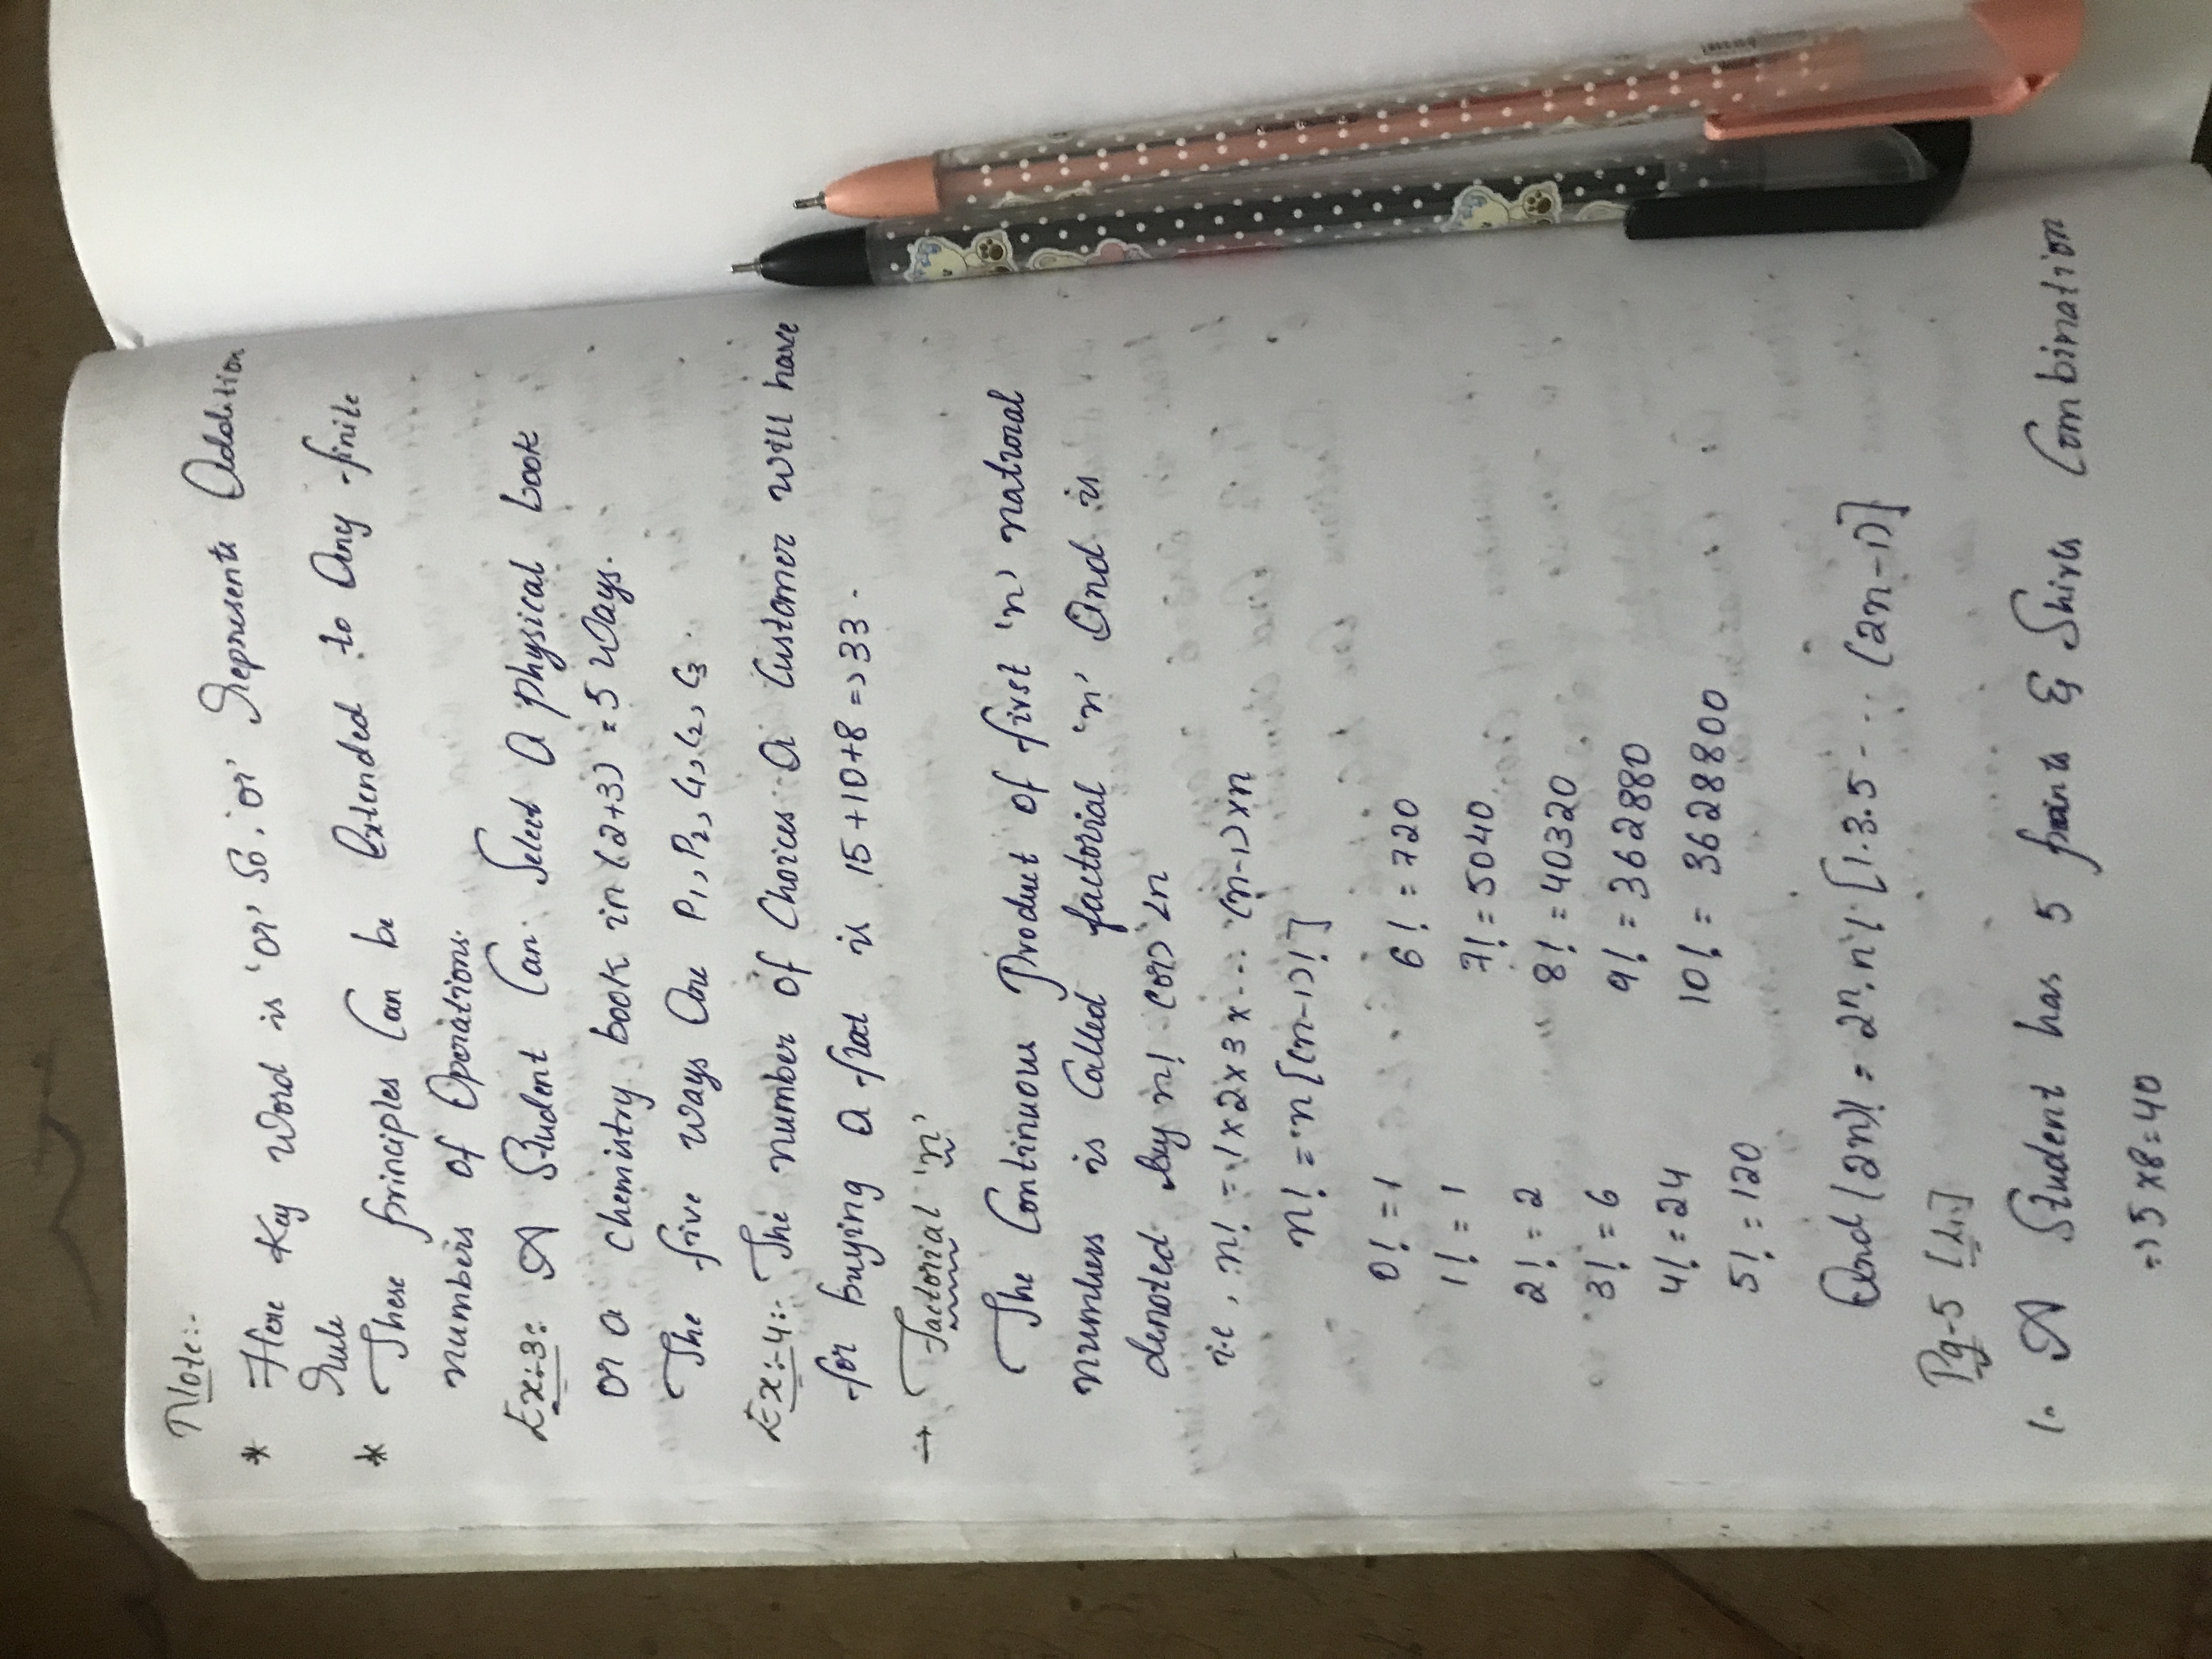 Note:-
* Here Key Word is 'or' So, 'or' Represents Addition
Rule
* These principles Can be Extended to Any finite
numbers of Operations.
Ex:-3:- A Student Can Select A physical book
or a chemistry book in (2+3) = 5 Ways.
The five ways Are P₁, P₂, C₁, C₂, C₃.
Ex:-4:- The number of Choices A Customer will have
for buying A flat is 15+10+8 => 33.
→ Factorial 'n'
The Continuous Product of first 'n' natural
numbers is Called factorial 'n' And is
denoted by n! (or) ∠n
i.e, n! = 1x2x3x... (n-1)xn
n! = n[(n-1)!]
0! = 1 6! = 720
1! = 1 7! = 5040
2! = 2 8! = 40320
3! = 6 9! = 362880
4! = 24 10! = 3628800
5! = 120
And (2n)! = 2ⁿ.n! [1.3.5--.. (2n-1)]
Pg-5
1. A Student has 5 pants & Shirts Combination
=> 5x8=40